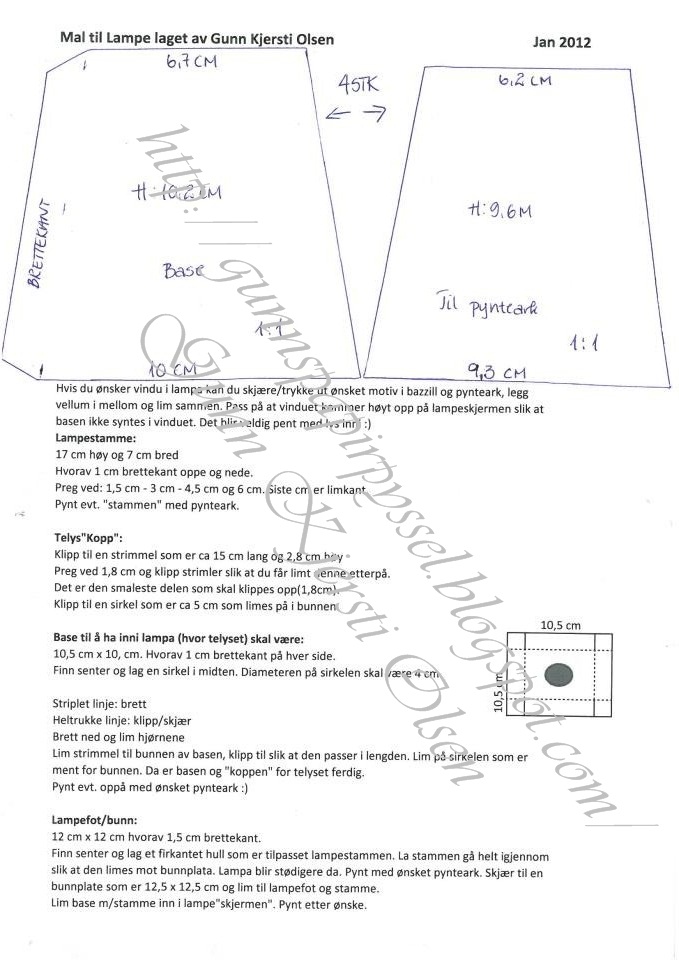 Mal til Lampe laget av Gunn Kjersti Olsen
Jan 2012
6,7 CM
45TK
6,2 CM
H: 10,2 CM
H: 9,6M
BRETTEKANT
Base
Til pynteark
1:1
1:1
10 CM
9,3 CM
Hvis du ønsker vindu i lampa kan du skjære/trykke ut ønsket motiv i bazzill og pynteark, legg
vellum i mellom og lim sammen. Pass på at vinduet kommer høyt opp på lampeskjermen slik at
basen ikke syntes i vinduet. Det blir veldig pent med lys inni :)
Lampestamme:
17 cm høy og 7 cm bred
Hvorav 1 cm brettekant oppe og nede.
Preg ved: 1,5 cm - 3 cm - 4,5 cm og 6 cm. Siste cm er limkant.
Pynt evt. "stammen" med pynteark.
Telys"Kopp":
Klipp til en strimmel som er ca 15 cm lang og 2,8 cm høy
Preg ved 1,8 cm og klipp strimler slik at du får limt denne etterpå.
Det er den smaleste delen som skal klippes opp(1,8cm).
Klipp til en sirkel som er ca 5 cm som limes på i bunnen
Base til å ha inni lampa (hvor telyset) skal være:
10,5 cm x 10, cm. Hvorav 1 cm brettekant på hver side.
Finn senter og lag en sirkel i midten. Diameteren på sirkelen skal være 4 cm
10,5 cm
10,5 cm
Striplet linje: brett
Heltrukke linje: klipp/skjær
Brett ned og lim hjørnene
Lim strimmel til bunnen av basen, klipp til slik at den passer i lengden. Lim på sirkelen som er
ment for bunnen. Da er basen og "koppen" for telyset ferdig.
Pynt evt. oppå med ønsket pynteark :)
Lampefot/bunn:
12 cm x 12 cm hvorav 1,5 cm brettekant.
Finn senter og lag et firkantet hull som er tilpasset lampestammen. La stammen gå helt igjennom
slik at den limes mot bunnplata. Lampa blir stødigere da. Pynt med ønsket pynteark. Skjær til en
bunnplate som er 12,5 x 12,5 cm og lim til lampefot og stamme.
Lim base m/stamme inn i lampe"skjermen". Pynt etter ønske.
http://gunnspapirpyssel.blogspot.com/
Gunn Kjersti Olsen